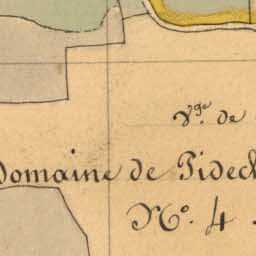 Vge. de
Domaine de Pidec
No. 4